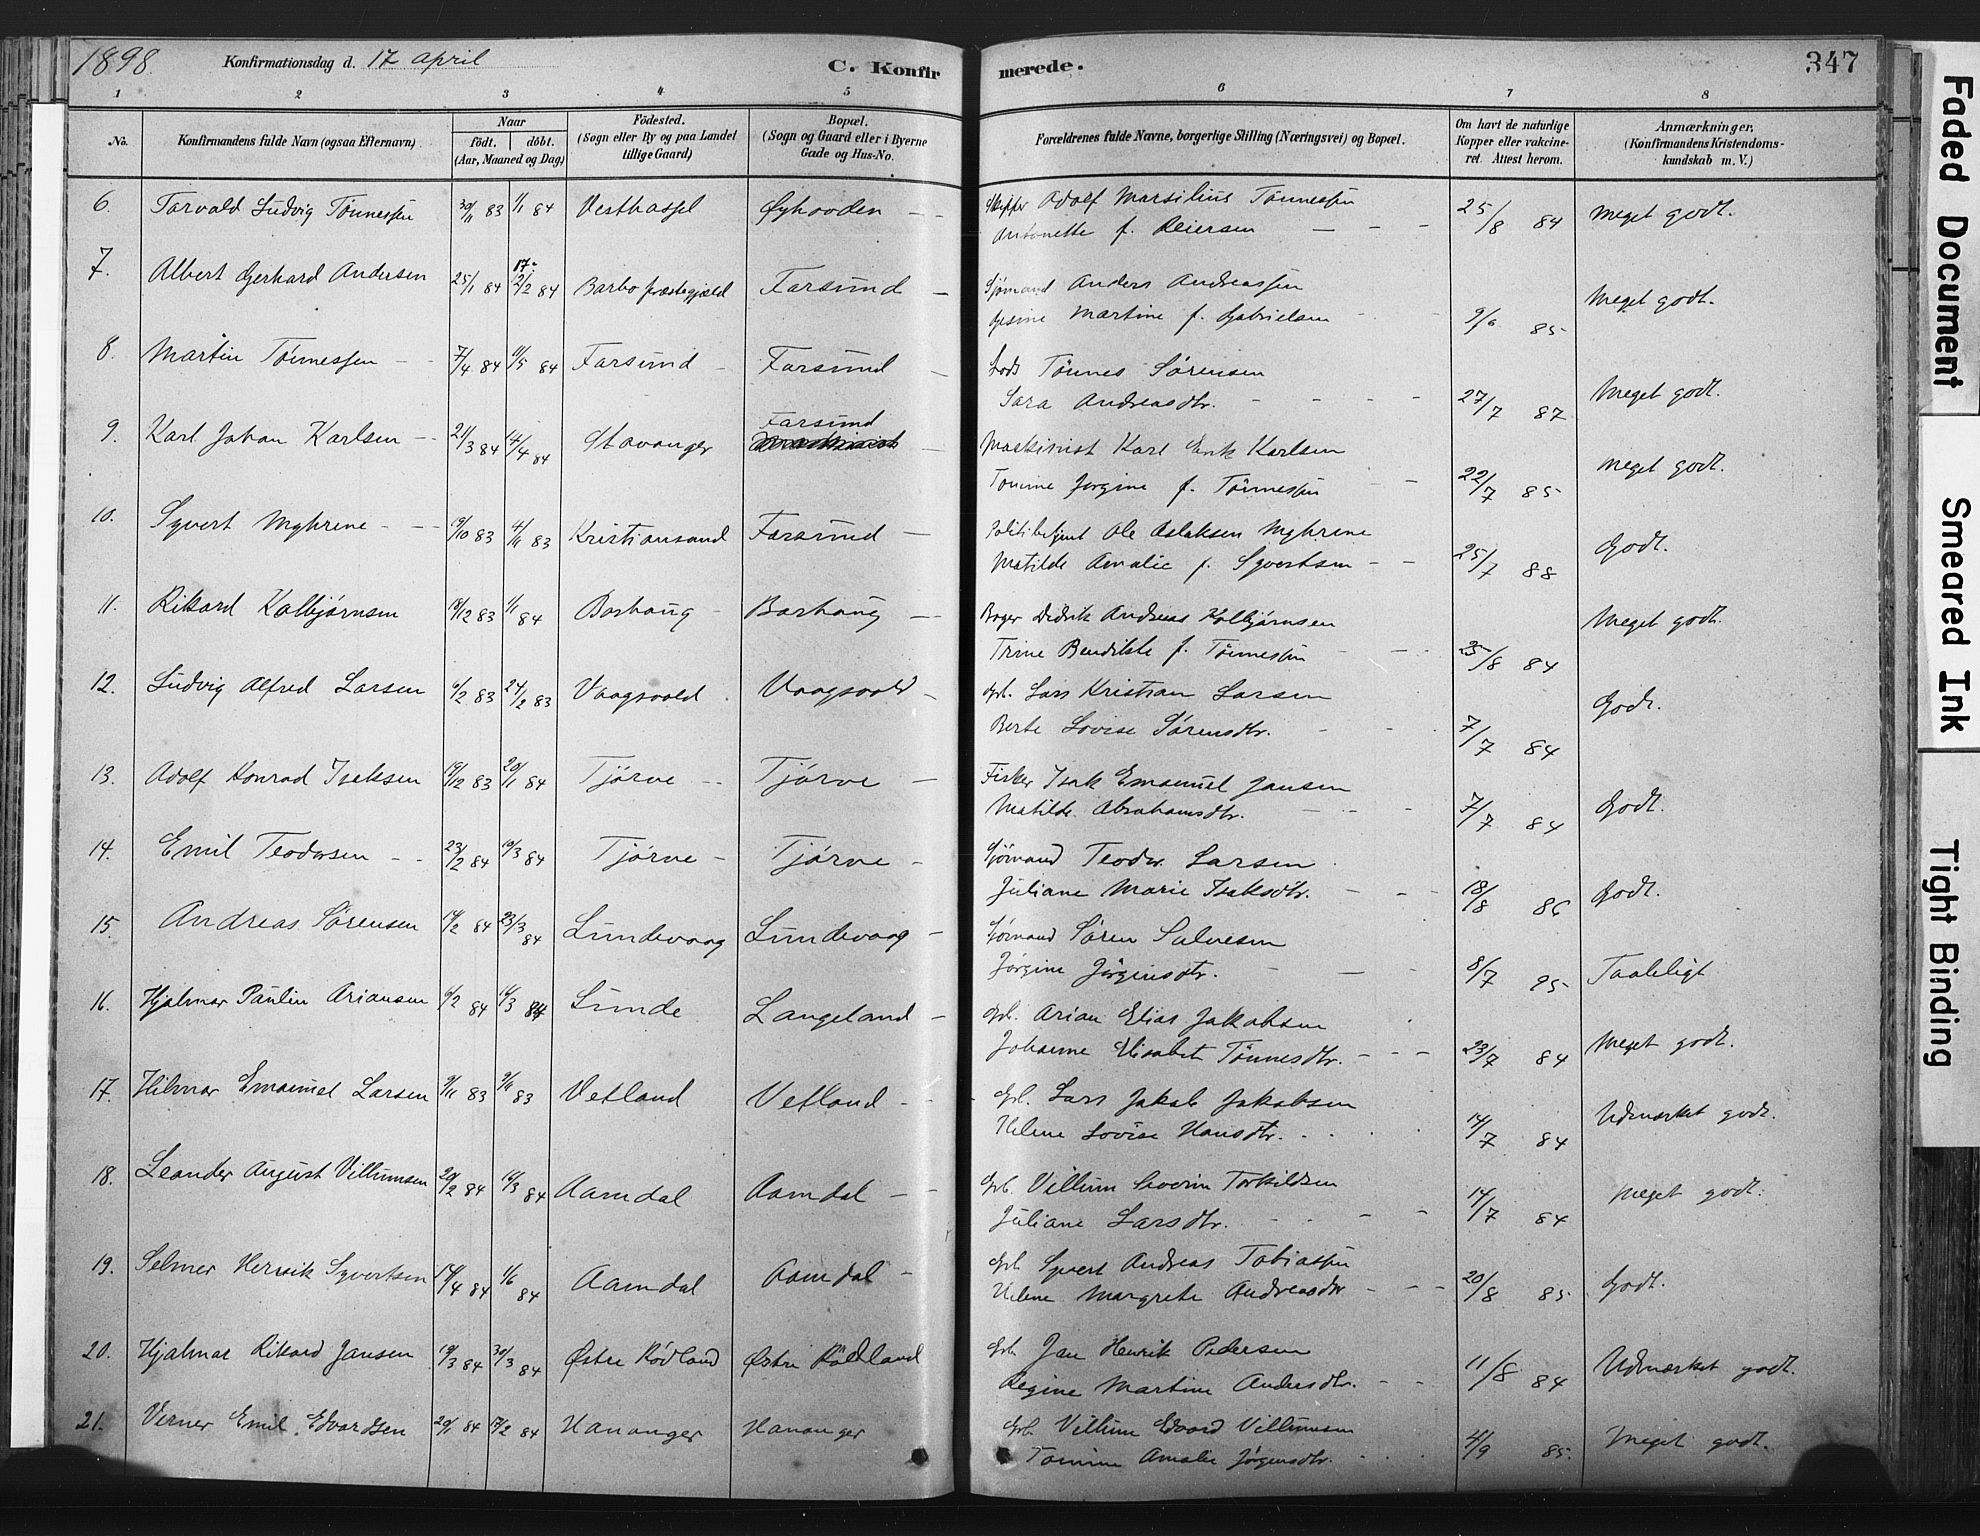 1898. Konfirmationsdag d. 17 April C. Konfirmerede. 347
1 2 3 4 5 6 7 8
No. Konfirmandens fulde Navn (ogsaa Efternavn) Naar født. døbt. (Aar, Maaned og Dag) Fødested. (Sogn eller By og paa Landet tillige Gaard) Bopæl. (Sogn og Gaard eller i Byerne Gade og Hus-No. Forældrenes fulde Navne, borgerlige Stilling (Næringsvei) og Bopæl. Om havt de naturlige Kopper eller vakcineret. Attest herom. Anmærkninger. (Konfirmandens Kristendomskundskab m. V.)
6. Torvald Ludvig Tønnessen 30/11 83 1/1 84 Vesthassel Øyhovden Skipper Adolf Marsilius Tønnessen
Antonette f. Reiersen 25/8 84 Meget godt.
7. Albert Gerhard Andersen 25/1 84 17/2 84 Barbo præstegjæld Farsund Sjømand Anders Andreassen
Gesine Martine f. Gabrielsen 9/6 85 Meget godt.
8. Martin Tønnessen 7/4 84 11/5 84 Farsund Farsund Lods Tønnes Sørensen
Sara Andreasdtr. 27/7 87 Meget godt.
9. Karl Johan Karlsen 21/3 84 14/4 84 Stavanger Farsund Maskinist Karl Erik Karlsen
Tomine Jørgine f. Tønnessen 22/7 85 Meget godt.
10. Syvert Myhrene 19/10 83 4/11 83 Kristiansand Farsund Politibetjent Ole Aslaksen Myhrene
Matilde Amalie f. Syvertsen 25/7 88 Godt.
11. Rikard Kolbjørnsen 18/12 83 1/1 84 Borhaug Borhaug Bager Didrik Andreas Kolbjørnsen
Trine Bendikte f. Tønnessen 25/8 84 Meget godt.
12. Ludvig Alfred Larsen 6/2 83 24/2 83 Vaagsvold Vaagsvold Gbr. Lars Kristian Larsen
Berte Lovise Sørensdtr. 7/7 84 Godt.
13. Adolf Konrad Isaksen 19/12 83 20/1 84 Tjørve Tjørve Fisker Isak Emanuel Jansen
Matilde Abrahamsdtr. 7/7 84 Godt.
14. Emil Teodorsen 23/2 84 19/3 84 Tjørve Tjørve Sjømand Teodor Larsen
Juliane Marie Isaksdtr. 18/8 86 Godt.
15. Andreas Sørensen 14/2 84 23/3 84 Lundevaag Lundevaag Sjømand Søren Salvesen
Jørgine Jørginsdtr. 8/7 95 Taaleligt
16. Hjalmar Paulin Ariansen 6/2 84 16/3 84 Lunde Langeland Gbr. Arian Elias Jakobsen
Johanne Elisabet Tønnesdtr. 23/7 84 Meget godt.
17. Hilmar Emanuel Larsen 9/11 83 9/11 83 Vetland Vetland Gbr. Lars Jakob Jakobsen
Helene Lovise Hansdtr. 14/7 84 Udmærket godt.
18. Leander August Villumsen 20/2 84 16/3 84 Aamdal Aamdal Gbr. Villum Severin Torkildsen
Juliane Larsdtr. 14/7 84 Meget godt.
19. Selmer Henrik Syvertsen 14/4 84 1/6 84 Aamdal Aamdal Gbr. Syvert Andreas Tobiassen
Helene Margrete Andreasdtr 20/8 85 Godt.
20. Hjalmar Rikard Jansen 19/3 84 30/3 84 Østre Rødland Østre Rødland Gbr. Jan Henrik Pedersen
Regine Martine Andersdtr. 11/8 84 Udmærket godt.
21. Verner Emil Edvardsen 20/1 84 17/2 84 Hananger Hananger Gbr. Villum Edvard Villumsen
Tomine Amalie Jørgensdtr. 4/9 85 Meget godt.
Faded Document
Smeared Ink
Tight Binding